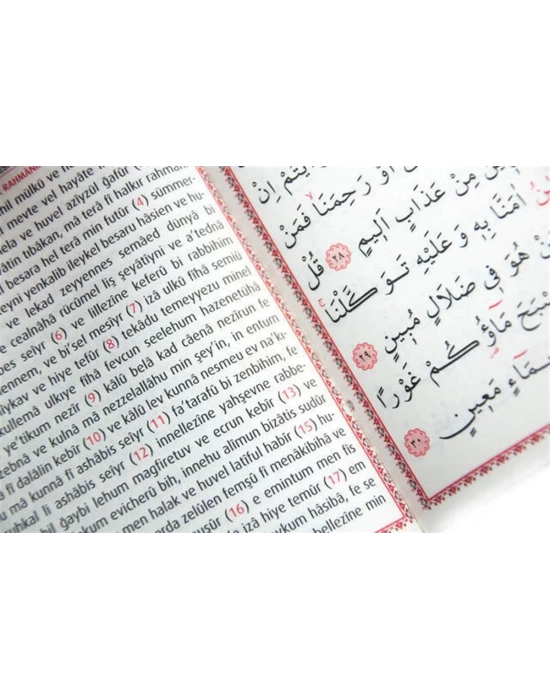 RAHMANI
mil mülkü ve
l meyte vel hayate
ela ve huvel azîyzül gafûr
âtin tıbâkan, mâ terâ fî halkır rahman
l besara hel terâ min futûr (4) sümmer-
eyni yenkalib ileykel besaru hâsien ve hu-
ve lekad zeyyennes semâed dünyâ bi
e cealnâhâ rücûmel liş şeyâtiyni ve a'tednâ
bes seîyr (6) ve lillezîne keferû bi rabbihim
ennem, ve bi'sel mesîyr (7) izâ ulkû fîhâ semiû
îykav ve hiye tefûr (8) tekâdu temeyyezu minel
kullemâ ulkıye fîhâ fevcun seelehum hazenetühâ
e'tikum nezîr (9) kâlû belâ kad câenâ nezîrun fe
zebnâ ve kulnâ mâ nezzelallâhu min şey'in, in entum
â fî dalâlin kebîr (10) ve kâlû lev kunnâ nesmeu ev na'kı-
u mâ kunnâ fî ashâbis seîyr (11) fa'tarafû bi zenbihim, fe
uhkal li ashâbis seîyr (12) innellezîne yahşevne rabbe-
bil ğaybi lehum mağfiretuv ve ecrun kebîr (13) ve
kum evicherû bih, innehu alîmun bizâtis sudûr
men halak ve huvel latîful habîr (15) hu-
erda zelûlen femşû fî menâkibihâ ve
nuşûr (16) e emintum men fis
izâ hiye temûr (17) em
eykum hâsibâ, fe se
bellezîne min
يْتُمْ اِنْ
اَوْ رَحِمَنَاۙ فَمَنْ
مِنْ عَذَابٍ اَلٖيمٍ ﴿٢٨﴾ قُلْ
اٰمَنَّا بِهٖ وَعَلَيْهِ تَوَكَّلْنَاۚ
مَنْ هُوَ فٖي ضَلَالٍ مُبٖينٍ ﴿٢٩﴾
صْبَحَ مَٓاؤُ۬كُمْ غَوْرًا
بِمَٓاءٍ مَعٖينٍ ﴿٣٠﴾